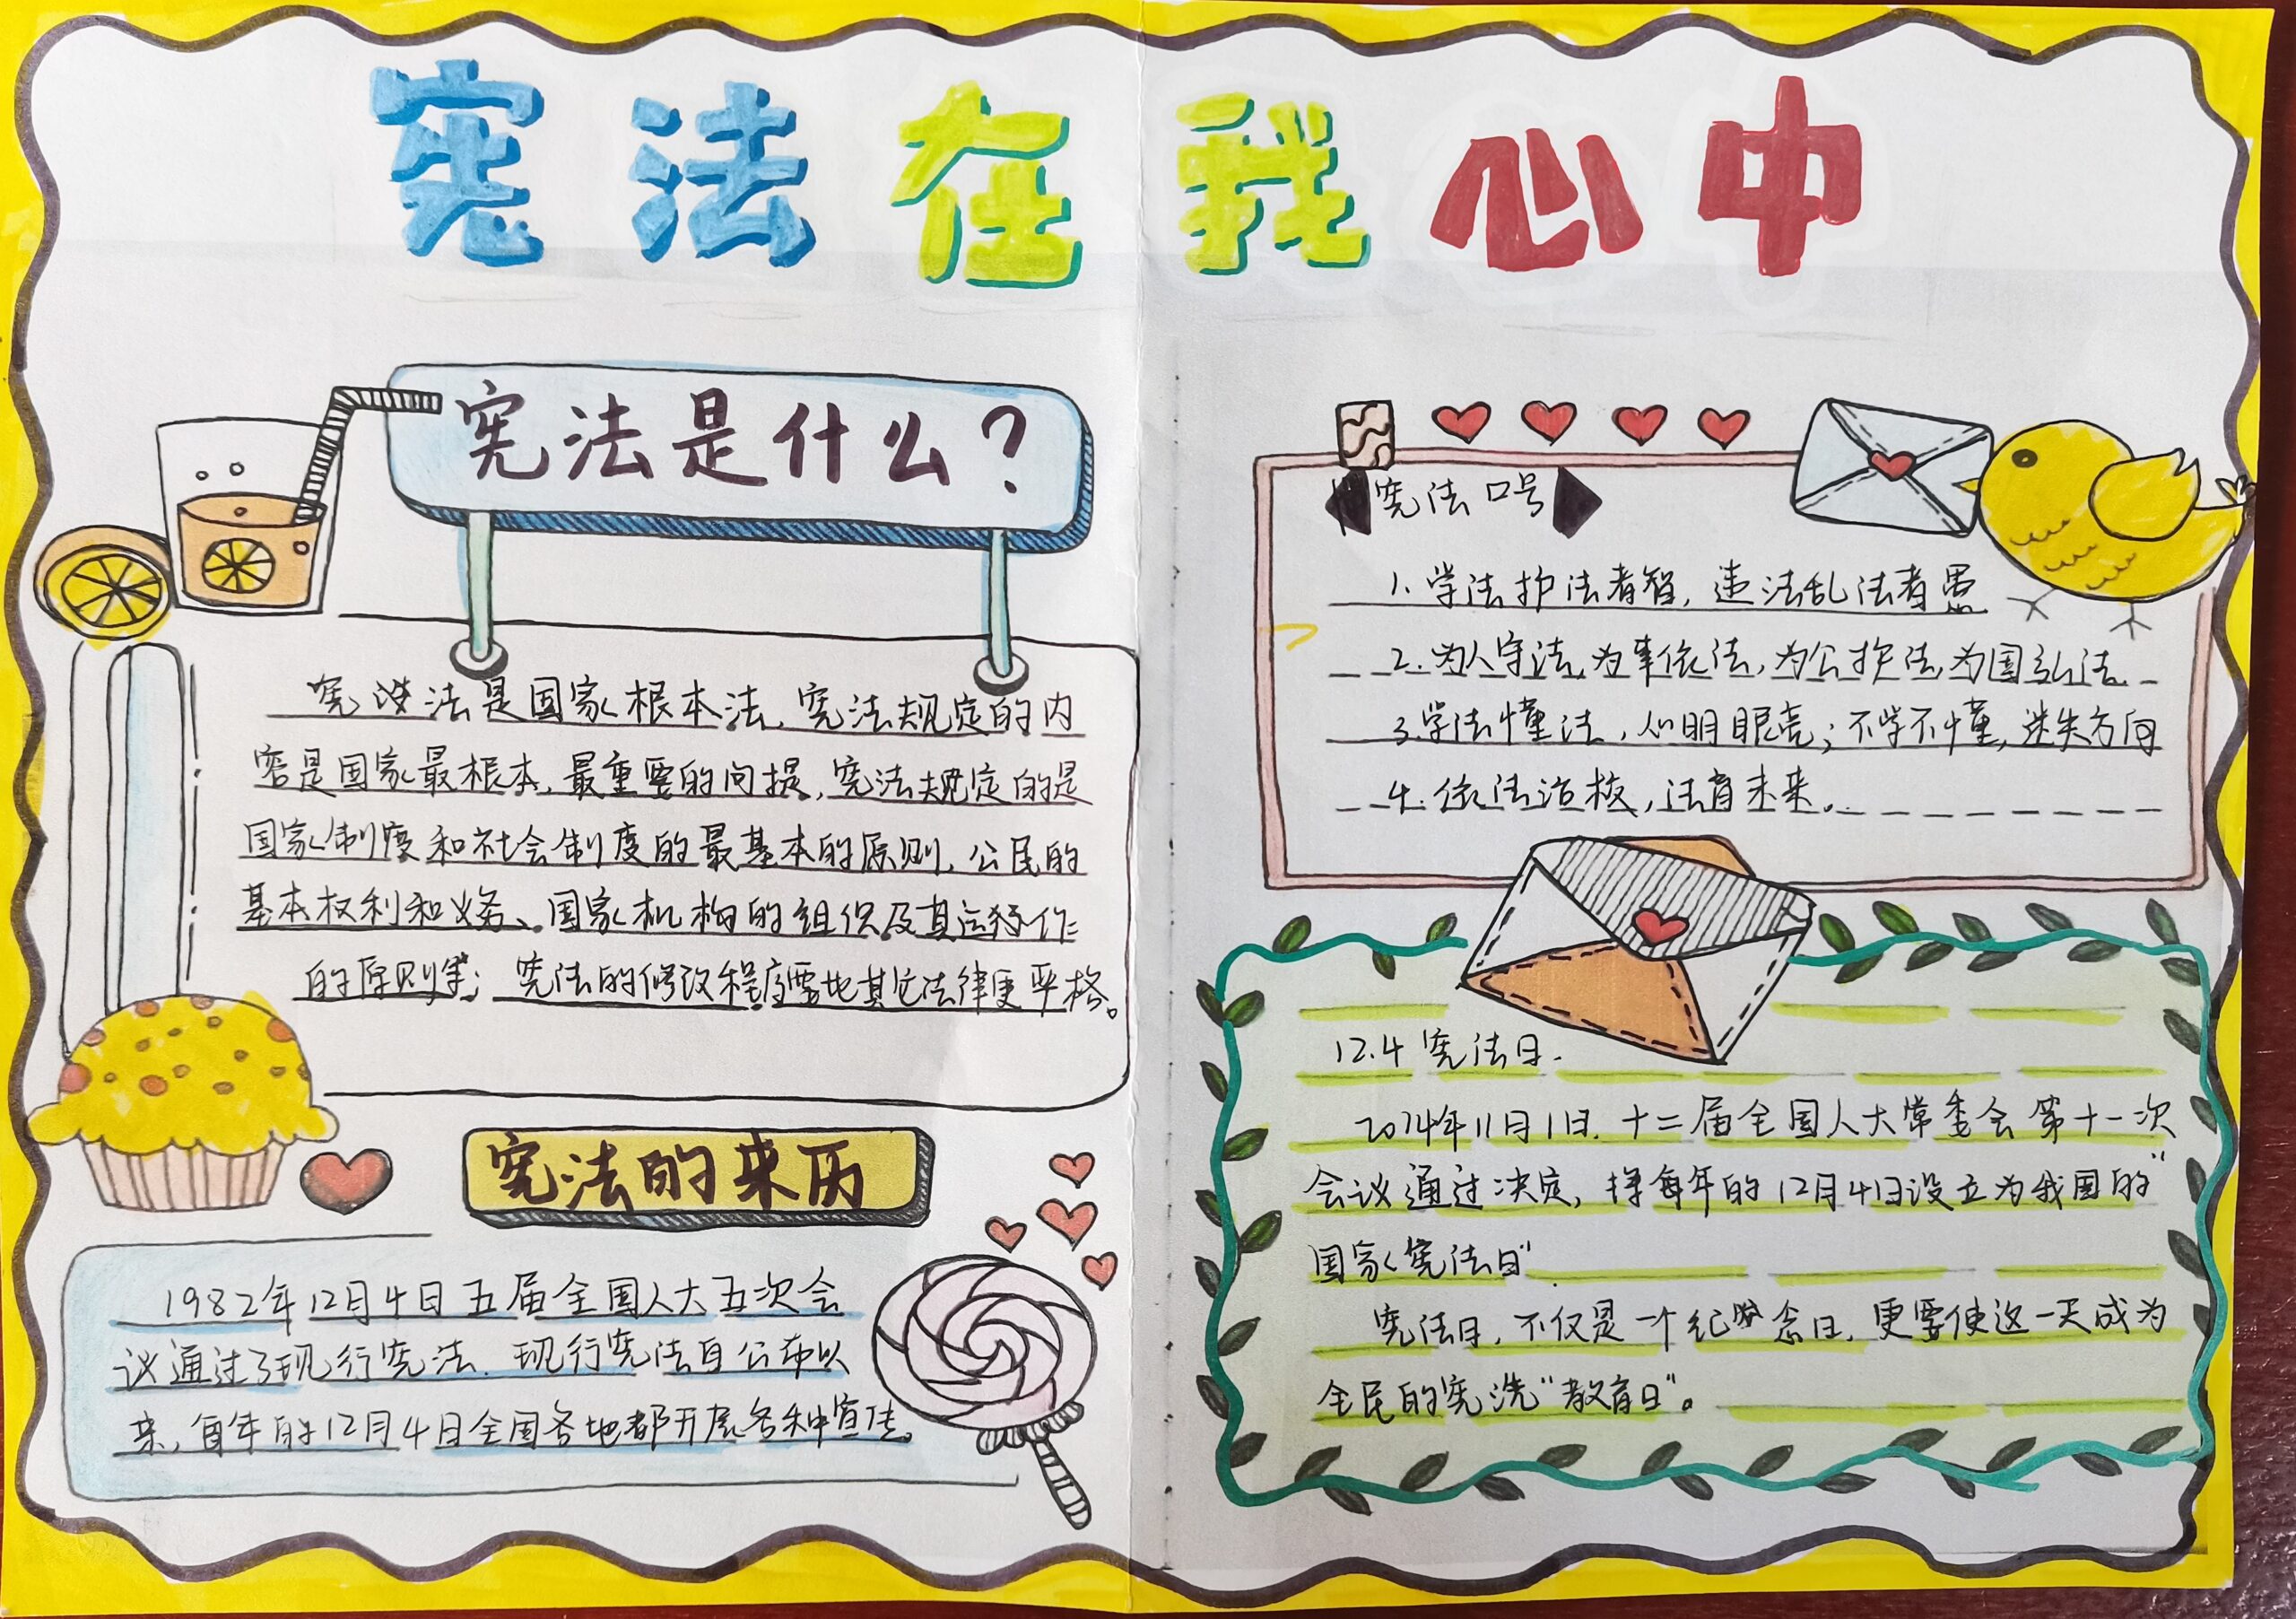 宪法在我心中
宪法是什么?
宪法是国家根本法,宪法规定的内
容是国家最根本,最重要的问提,宪法规定的是
国家制度和社会制度的最基本的原则,公民的
基本权利和义务、国家机构的组织及其运作
的原则等;宪法的修改程序要地其它法律更严格。
宪法的来历
1982年12月4日五届全国人大五次会
议通过了现行宪法.现行宪法自公布以
来,每年的12月4日全国各地都开展各种宣传。
宪法口号
1.学法护法者智,违法乱法者愚
2.为人守法,为事依法,为公护法,为国弘法.
3.学法懂法,心明眼亮;不学不懂,迷失方向
4.依法治校,法育未来。
12.4宪法日.
2014年11月1日.十二届全国人大常委会第十一次
会议通过决定,将每年的12月4日设立为我国的“
国家宪法日”.
宪法日,不仅是一个纪念日,更要使这一天成为
全民的宪洗“教育日”。